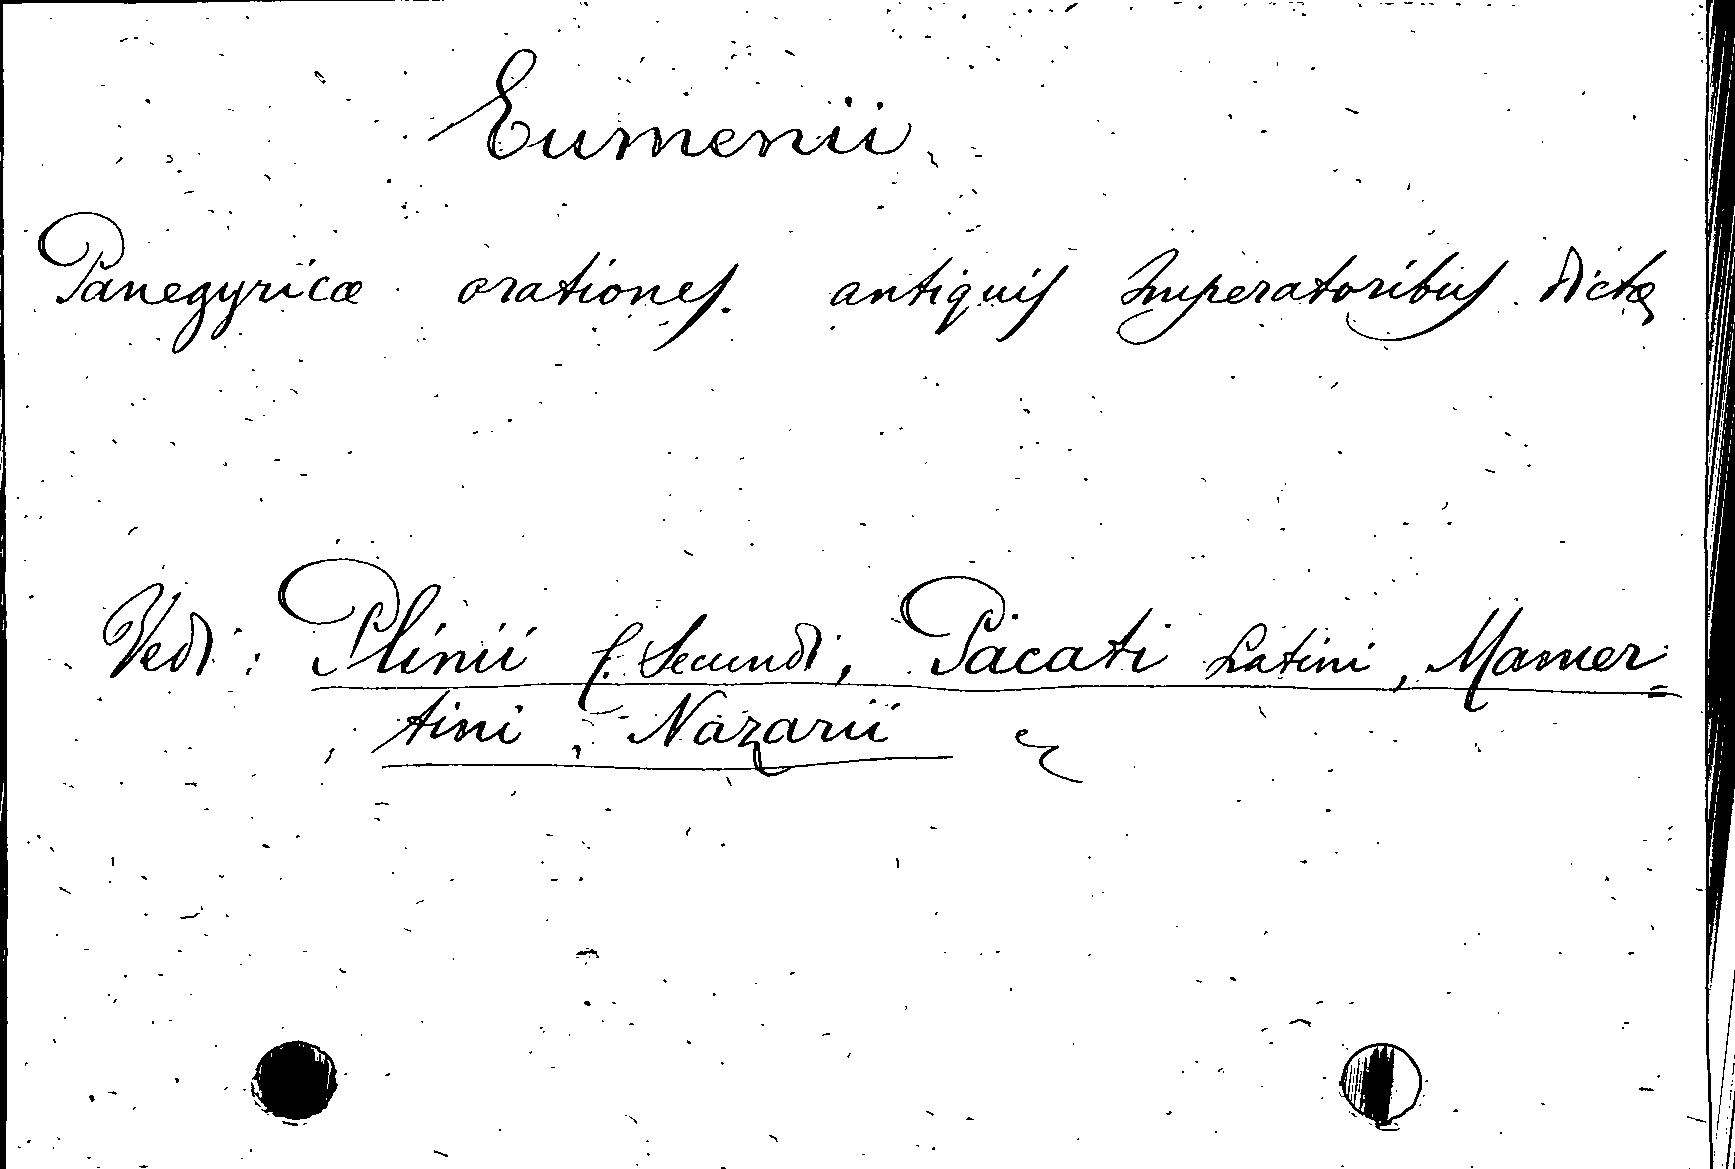 Eumenii
Panegyricæ orationes. antiquis Imperatoribus dictæ
Vedi: Plinii C. Secundi, Pacati Latini, Mamer=
tini, Nazarii